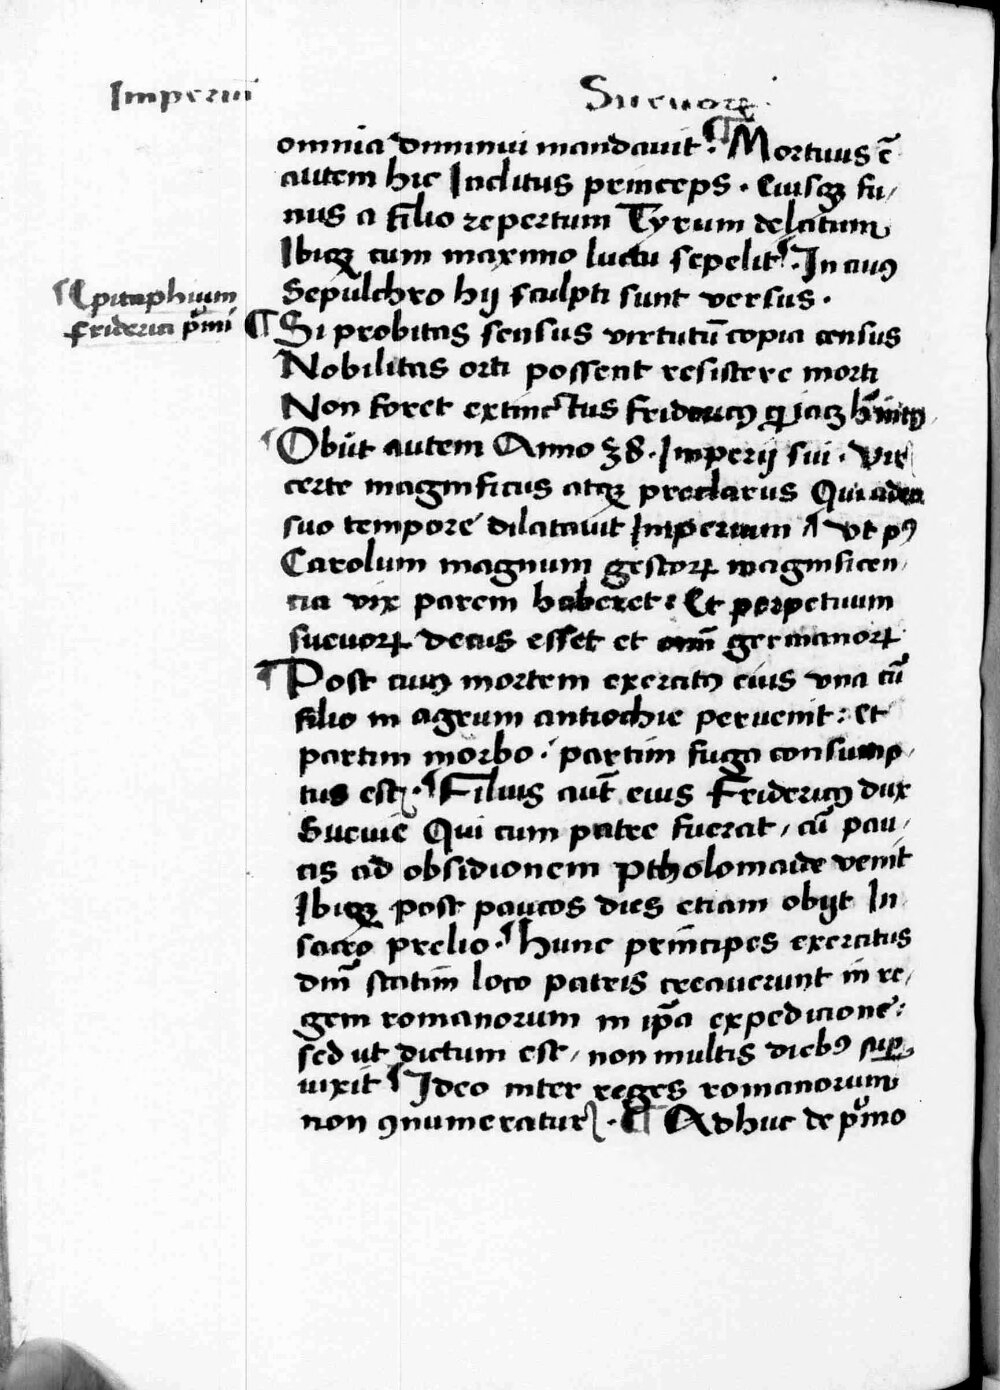 Imperiu̅ Sueuoꝝ.
omnia diuinui mandauit. ¶ Mortuus e̅
autem hic Inclitus princeps. Eiusqꝫ fu/
nus a filio repertum Tyrum delatum
Ibiqꝫ cum maximo luctu sepelit. ¶ In cuiꝰ
Sepulchro hij sculpti sunt versus.
¶ Epitaphium
friderici p̾mi
¶ Si probitas sensus virtutu̅ copia census
Nobilitas orti possent resistere morti
Non foret extinctus fridericꝰ
Obijt autem Anno 38. Imperij sui. Vir
certe magnificus atqꝫ preclarus Qui adeo
suo tempore dilatauit Imperium / vt pꝰ
Carolum magnum gestoꝝ magnificen/
cia vix parem haberet: Et perpetuum
sueuoꝝ decus esset et om̅ germanoꝝ
¶ Post cuiꝰ mortem exercitꝰ eius vna cu̅
filio in agrum antiochie peruenit: et
partim morbo. partim fuga consump/
tus est. ¶ Filius aut̅ eius Fridericꝰ dux
Sueuie Qui cum patre fuerat / cu̅ pau/
cis ad obsidionem Ptholomaide venit
Ibiqꝫ post paucos dies etiam obijt In
sacro prelio. ¶ hunc principes exercitus
dni̅ statim loco patris creauerunt in re/
gem romanorum in ip̅a expedicione:
sed ut dictum est / non multis diebꝰ suꝑ
uixit ¶ Ideo inter reges romanorum
non ꝯnumeratur. ¶ Adhuc de p̾mo